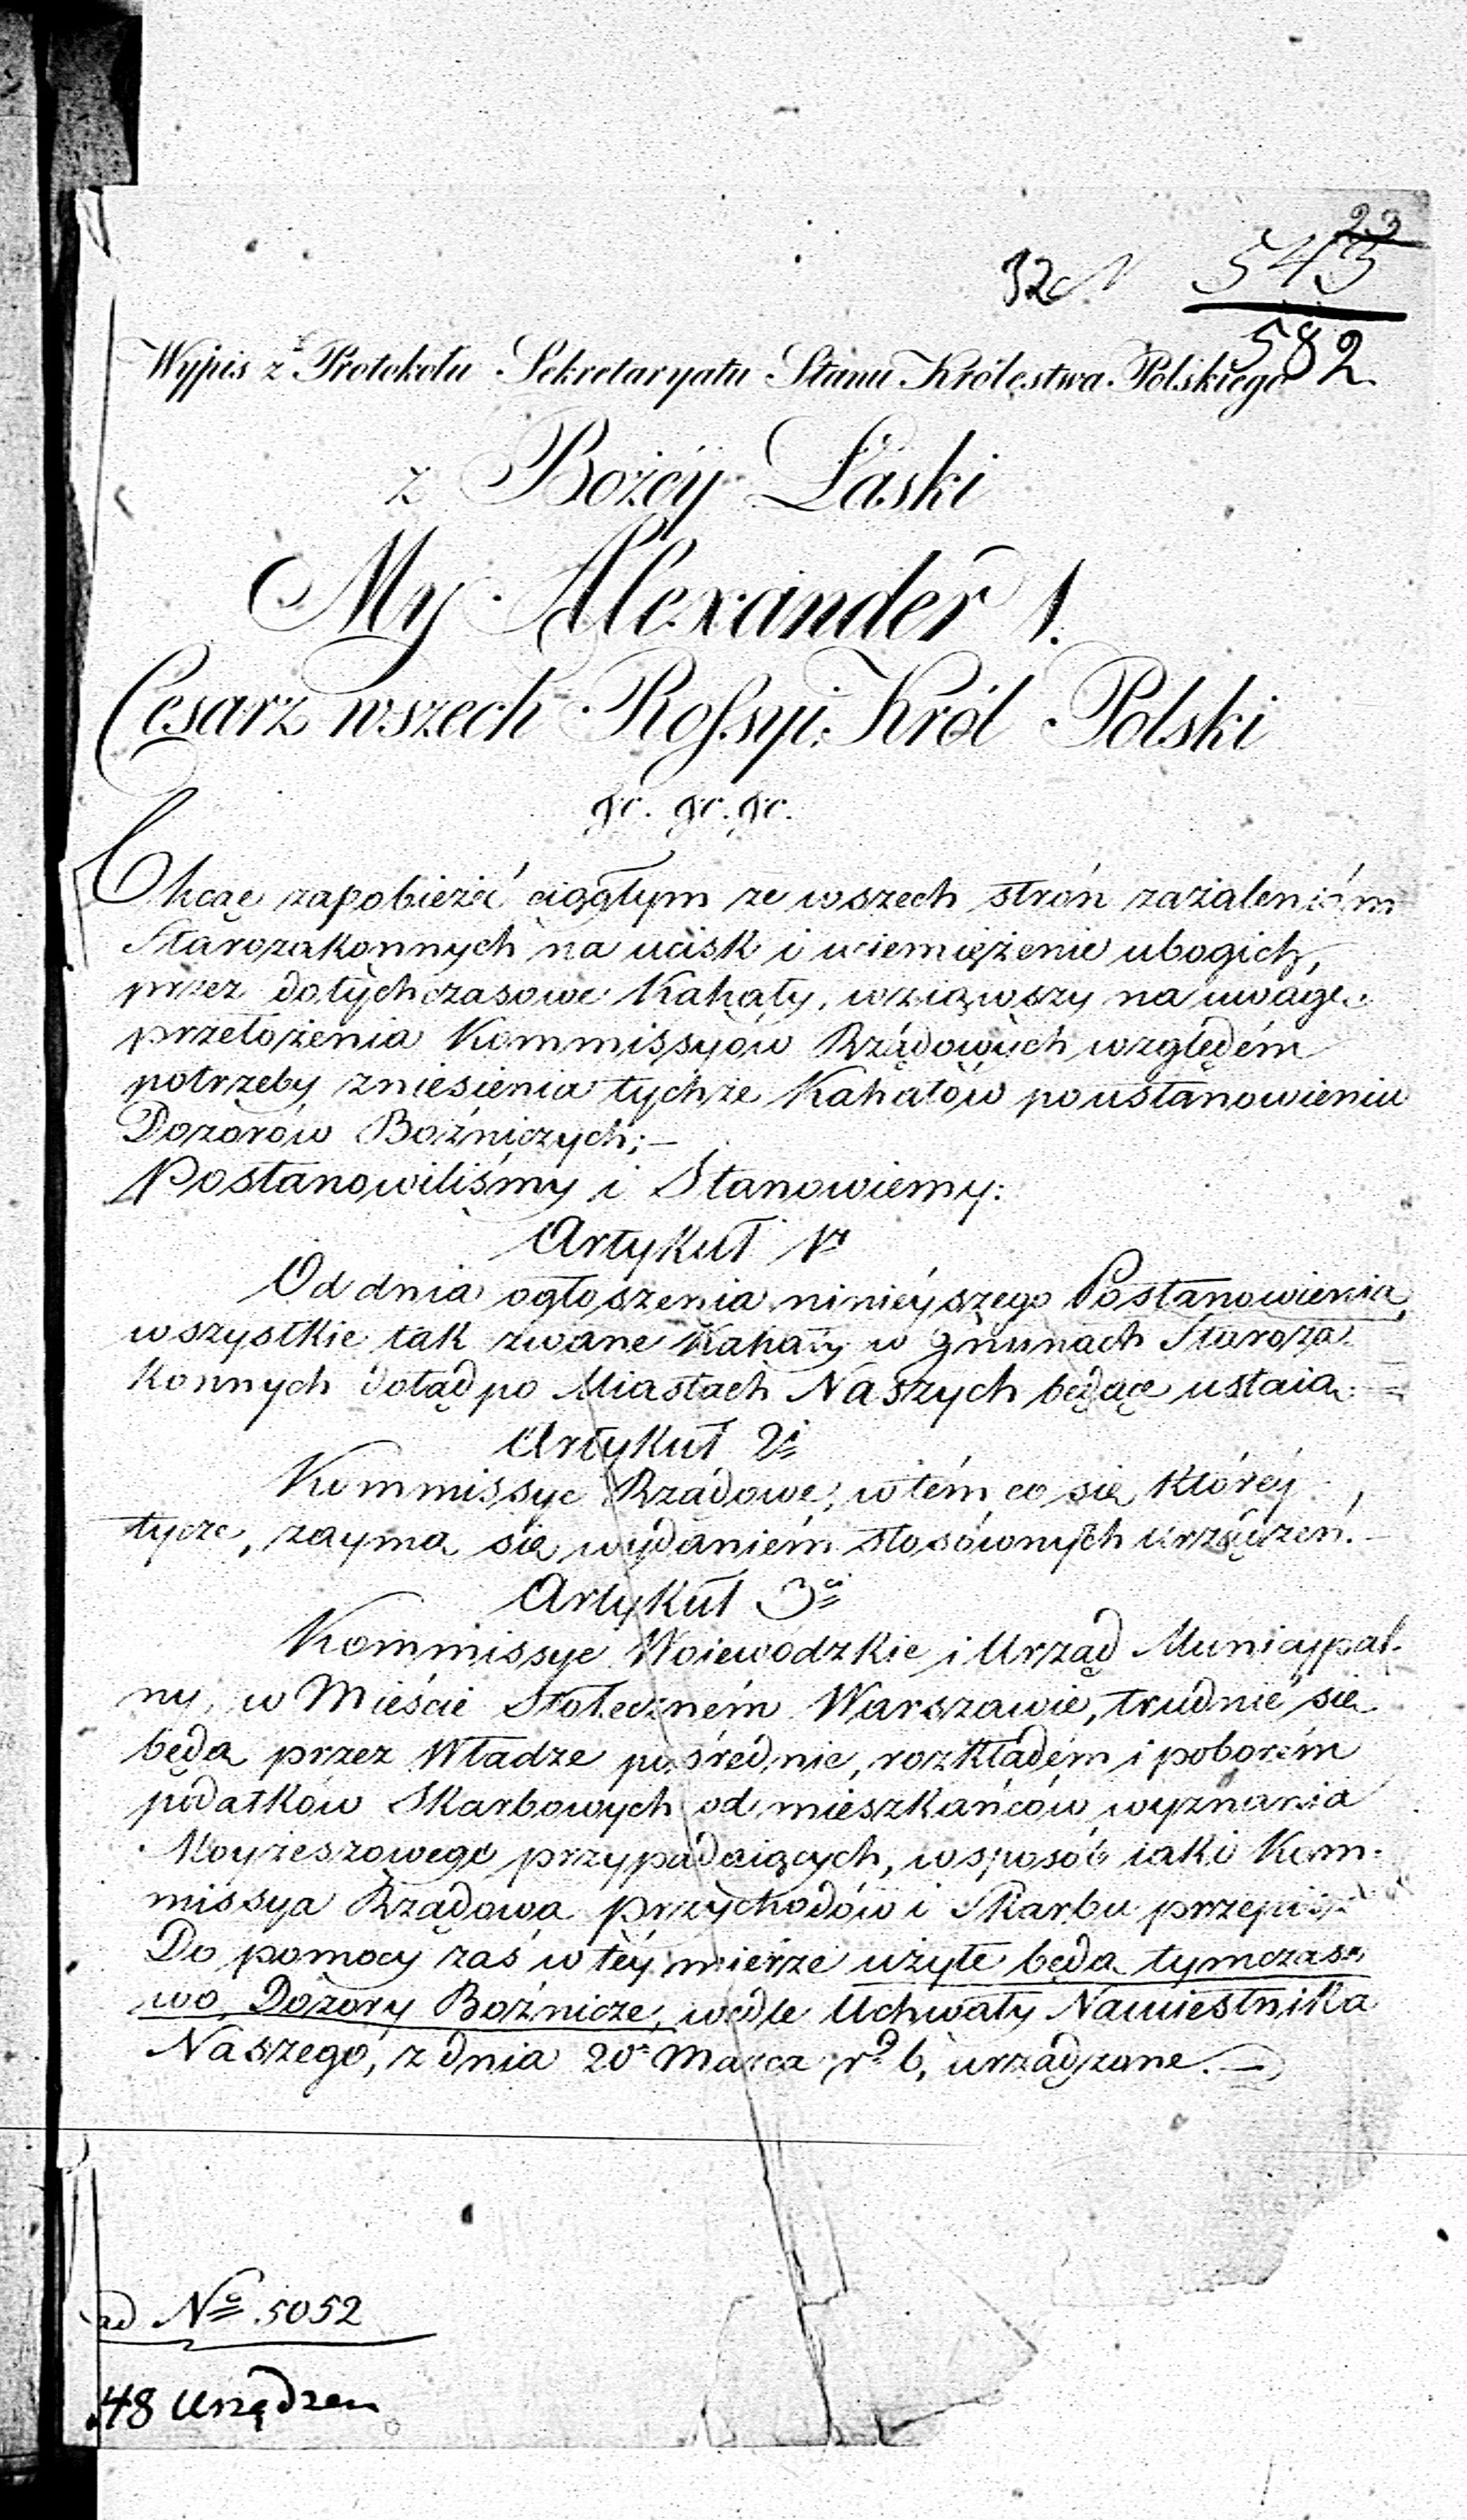 23
32 543
582
Wypis z Protokołu Sekretaryatu Stanu Królestwa Polskiego
z Bożéy Łaski
My Alexander I.
Cesarz wszech Rossyi: Król Polski
&c. &c. &c.
Chcąc zapobieżéć ciągłym ze wszech strón zażaleniom
Starozakonnych na ucisk i uciemiężenie ubogich,
przez dotychczasowe Kahały, wziąwszy na uwagę
przełożenia Kommissyów Rządowych względém
potrzeby zniesienia tychże Kahałów po ustanowieniu
Dozorów Bóżniczych; —
Postanowiliśmy i Stanowiemy:
Artykuł 1y
Od dnia ogłoszenia ninieyszego Postanowienia,
wszystkie tak zwane Kahały w gminach Staroza-
konnych dotąd po Miastach Naszych będące ustaią. =
Artykuł 2i
Kommissye Rządowe, w tém co się któréy
tycze, zaymą się wydaniém stosownych urządzeń. —
Artykuł 3ci
Kommissye Woiewódzkie i Urząd Municypal-
ny, w Mieście Stołeczném Warszawie, trudnić się
będą przez Władze pośrednie, rozkładém i poborém
podatków Skarbowych od mieszkańców wyznania
Moyżeszowego przypadaiących, w sposób iaki Kom-
missya Rządowa Przychodów i Skarbu przepisze.
Do pomocy zaś w téy mierze użyte będą tymczaso
wo Dozory Bóżnicze, wedle Uchwały Namiestnika
Naszego, z dnia 20 Marca r. b. urządzone. —
ad No 5052
48 Urządzen